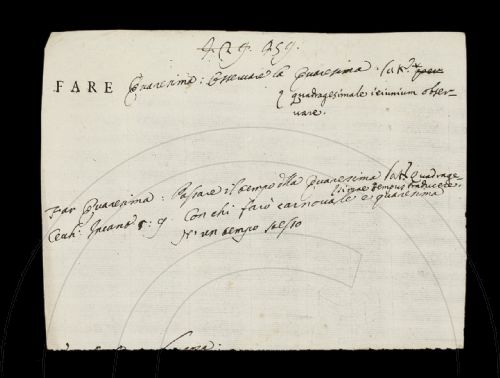 FARE Quaresima: Osservare la Quaresima. Lat.
quadragesimale ieiunium obser-
vare.
Far Quaresima: Passare il tempo della Quaresima Lat. Quadrage-
simae tempus traducere.
Cecch: Incant 5: 9 Con chi farò carnovale e quaresima
N' un tempo stesso